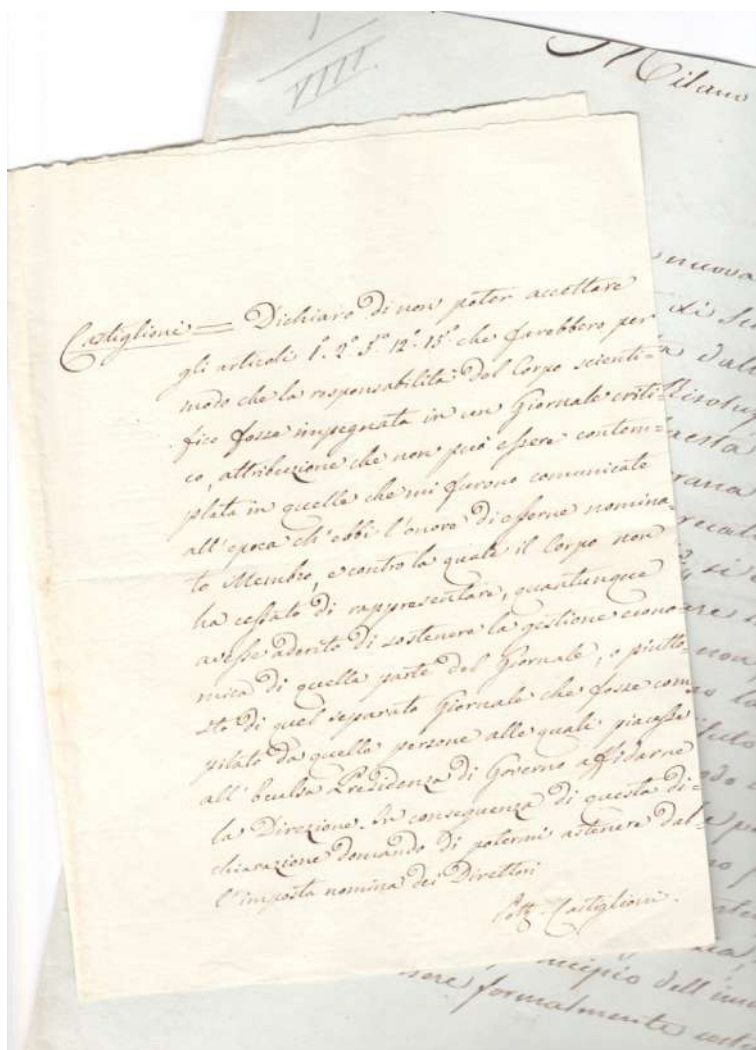 VIII.
Milano
Castiglioni = Dichiaro di non poter accettare
gli articoli 1.º 2.º 5.º 12.º 15.º che farebbero per
modo che la responsabilità del Corpo scienti=
fico fosse impegnata in un Giornale criti=
co, attribuzione che non può essere contem=
plata in quelle che mi furono comunicate
all'epoca ch'ebbi l'onore di esserne nomina=
to Membro, e contro la quale il Corpo non
ha cessato di rappresentare, quantunque
avesse aderito di sostenere la gestione econo=
mica di quella parte del Giornale, o piutto=
sto di quel separato Giornale che fosse com
pilato da quelle persone alle quali piacesse
all'Eccelsa Presidenza di Governo affidarne
la Direzione. In conseguenza di questa di=
chiarazione domando di potermi astenere dal=
l'imposta nomina dei Direttori
Castiglioni.
nuova
di
si
non
principio dell'
formalmente